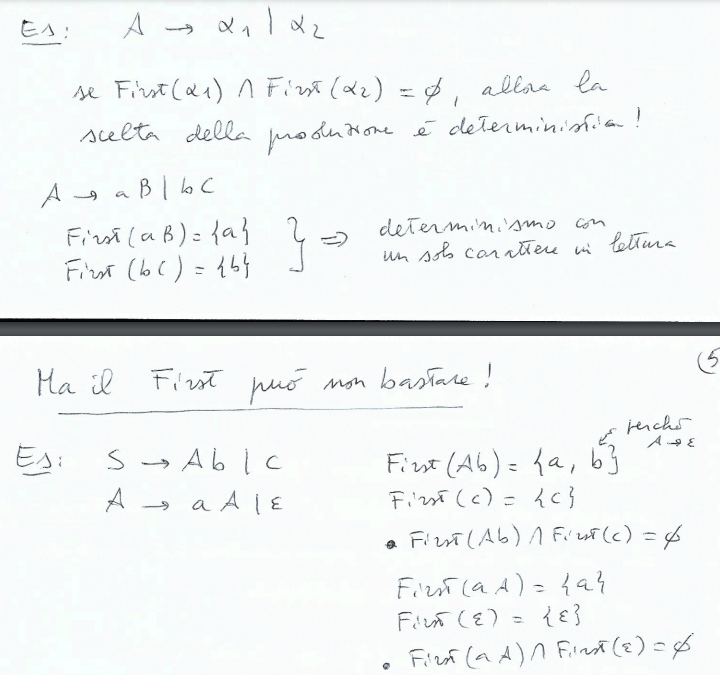 Es: A → α1 | α2
se First(α1) ∩ First(α2) = ∅, allora la
scelta della produzione è deterministica!
A → aB | bC
First(aB) = {a}
First(bC) = {b}
} ⇒ determinismo con
un solo carattere in lettura
(5
Ma il First può non bastare!
Es: S → Ab | c
A → aA | ε
First(Ab) = {a, b}
perché
A → ε
First(c) = {c}
• First(Ab) ∩ First(c) = ∅
First(aA) = {a}
First(ε) = {ε}
• First(aA) ∩ First(ε) = ∅